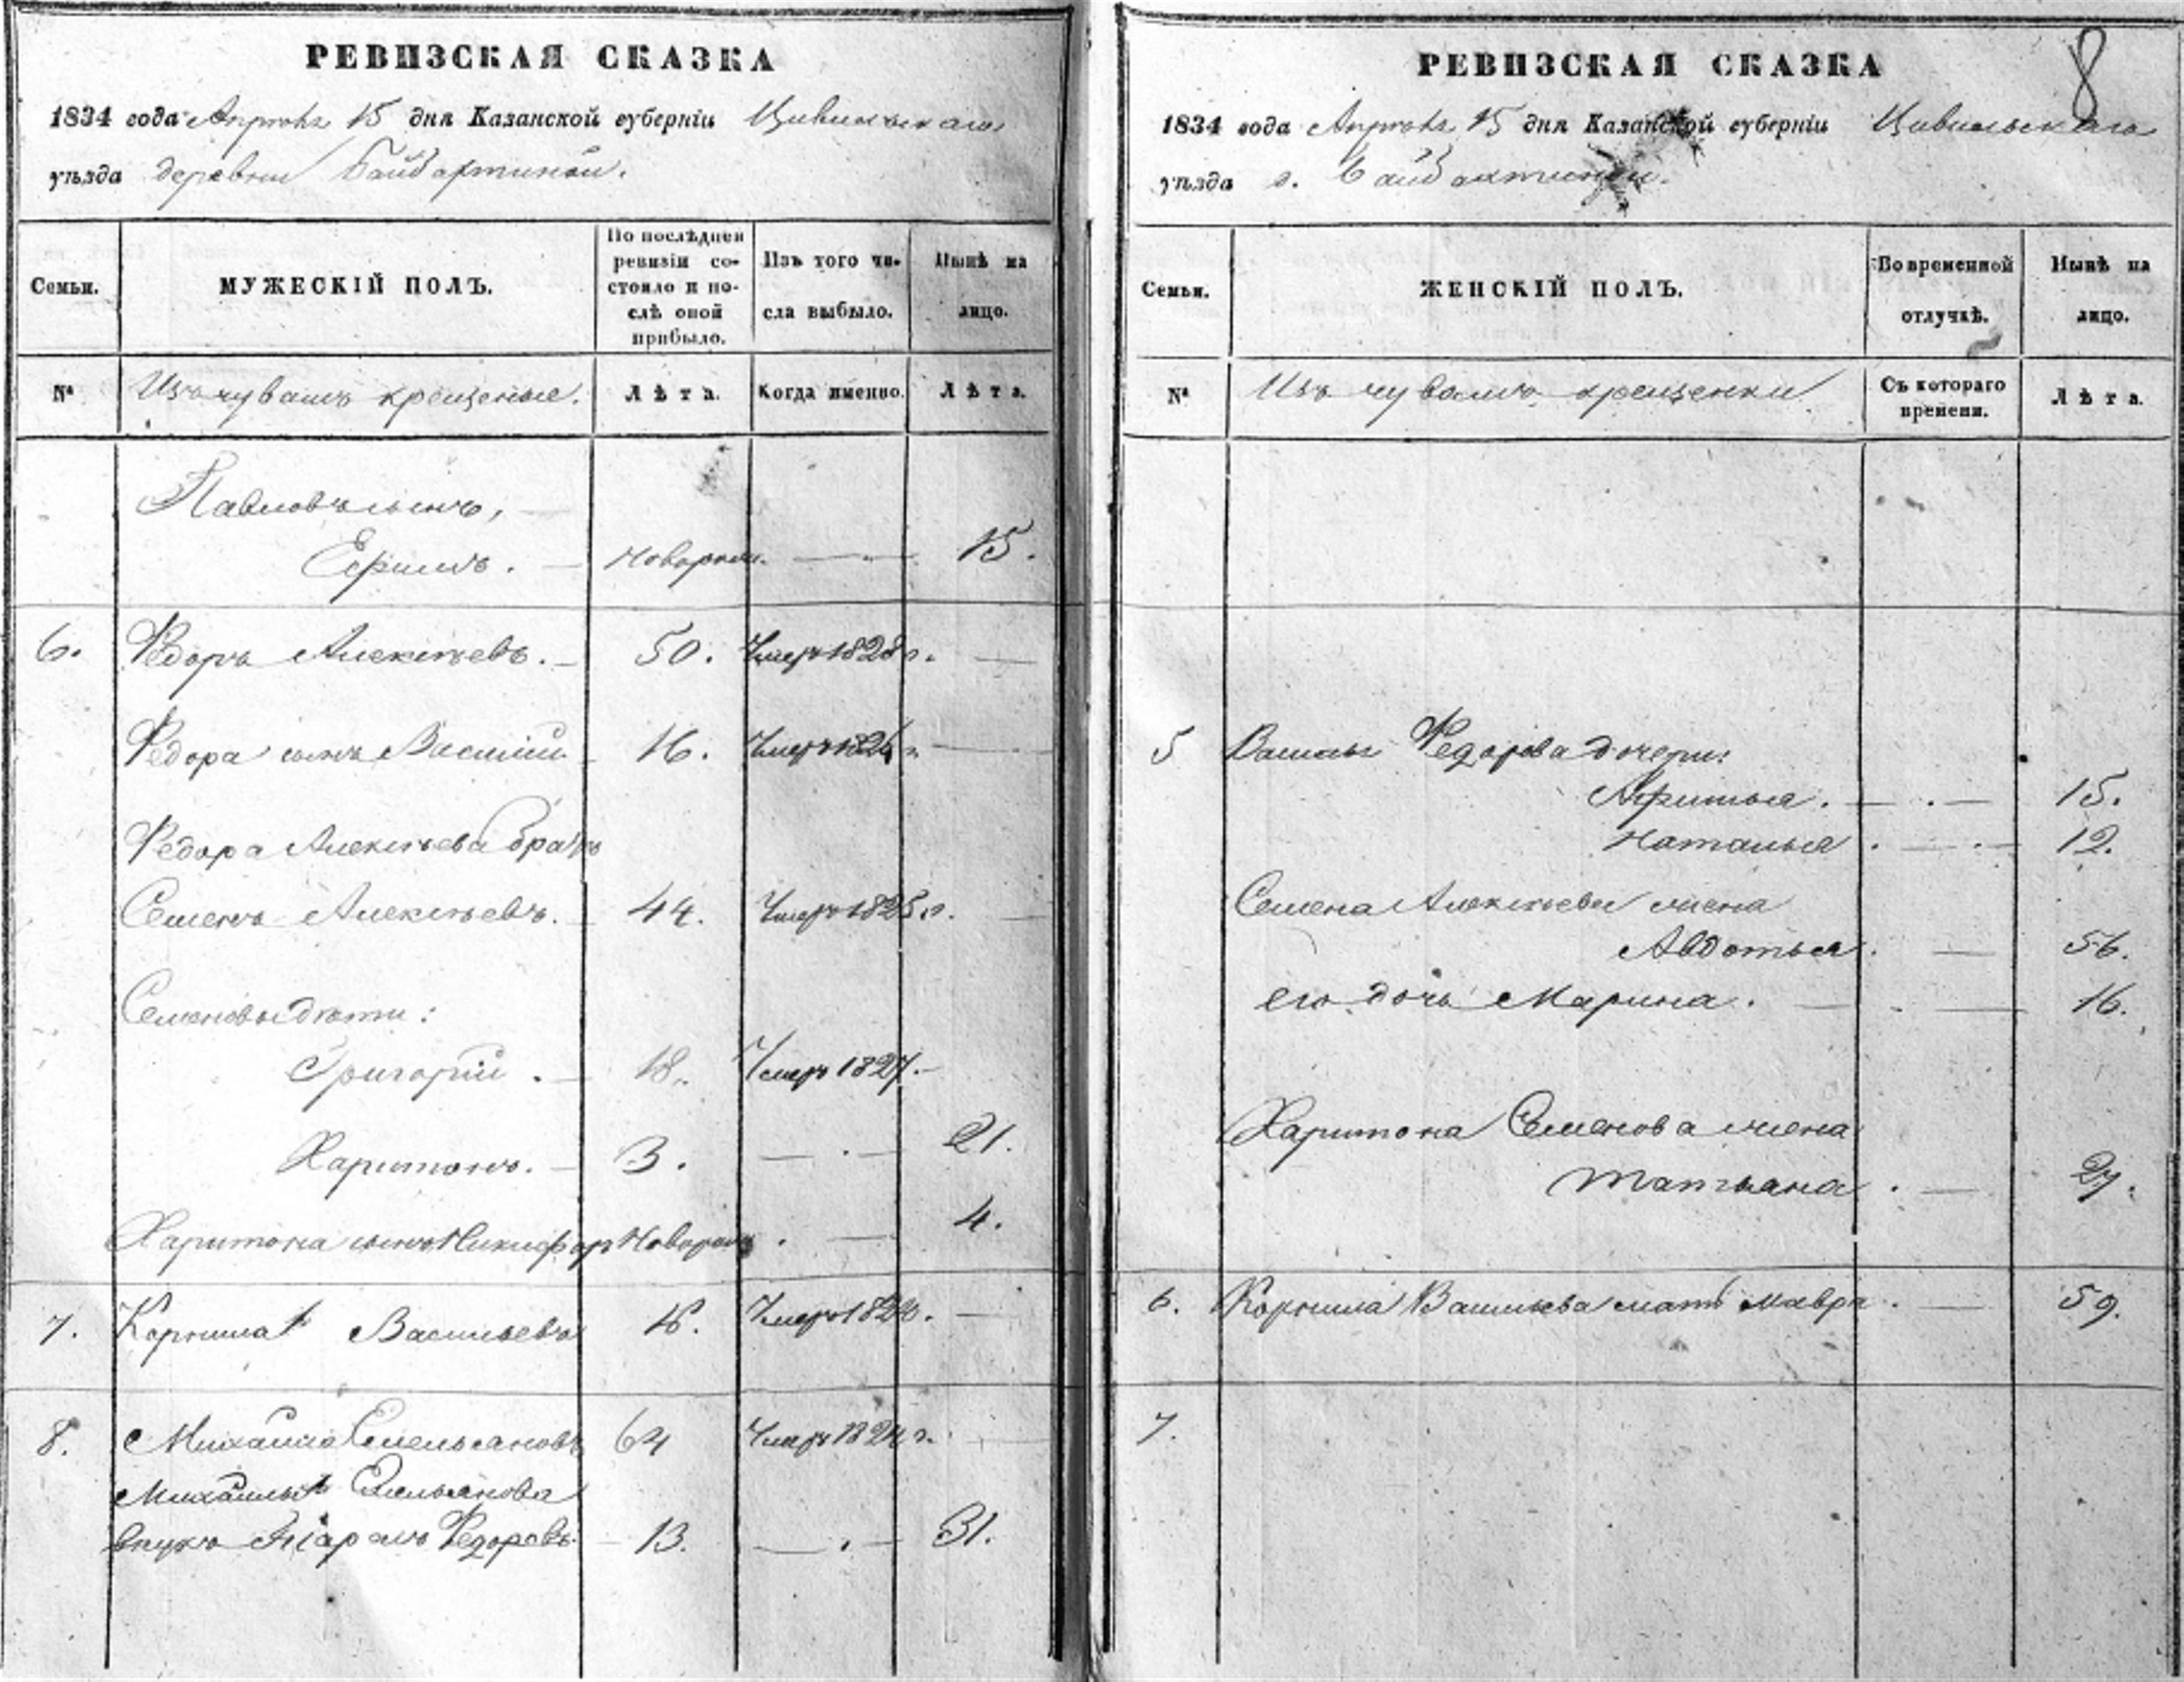 РЕВИЗСКАЯ СКАЗКА
1834 года Апреля 15 дня Казанской губерніи Цивильскаго
уѣзда деревни Байбахтиной.
Семьи.
МУЖЕСКІЙ ПОЛЪ.
По послѣдней ревизіи состояло и послѣ оной прибыло.
Изъ того числа выбыло.
Нынѣ на лицо.
№
Изъ чувашъ крещеные.
Лѣта.
Когда именно.
Лѣта.
Павловъ сынъ,
Ефимъ. новорож. 15.
6. Ѳедоръ Алексѣевъ. 50. Умеръ 1828 г.
Ѳедора сынъ Василій 16. Умеръ г.
Ѳедора Алексѣева братъ
Семенъ Алексѣевъ. 44. Умеръ 1825 г.
Семеновы дѣти:
Григорій. 18. Умеръ 1827.
Харитонъ. 3. 21.
Харитона сынъ Никифоръ Новорож. 4.
7. Корнила Васильевъ 16. Умеръ
8. Михайла Емельяновъ 64 Умеръ г.
Михайлы Емельянова
внукъ Федоровъ. 13. 31.
8
РЕВИЗСКАЯ СКАЗКА
1834 года Апреля 15 дня Казанской губерніи Цивильскаго
уѣзда д. Байбахтиной.
Семьи.
ЖЕНСКІЙ ПОЛЪ.
Во временной отлучкѣ.
Нынѣ на лицо.
№
Изъ чувашъ крещенки
Съ котораго времени.
Лѣта.
5 Василья Ѳедорова дочери:
Афимья. 15.
Наталья. 12.
Семена Алексѣева жена
Авдотья. 56.
его дочь Марина. 16.
Харитона Семенова жена
Татьяна. 27.
6. Корнила Васильева мать Мавра. 59.
7.